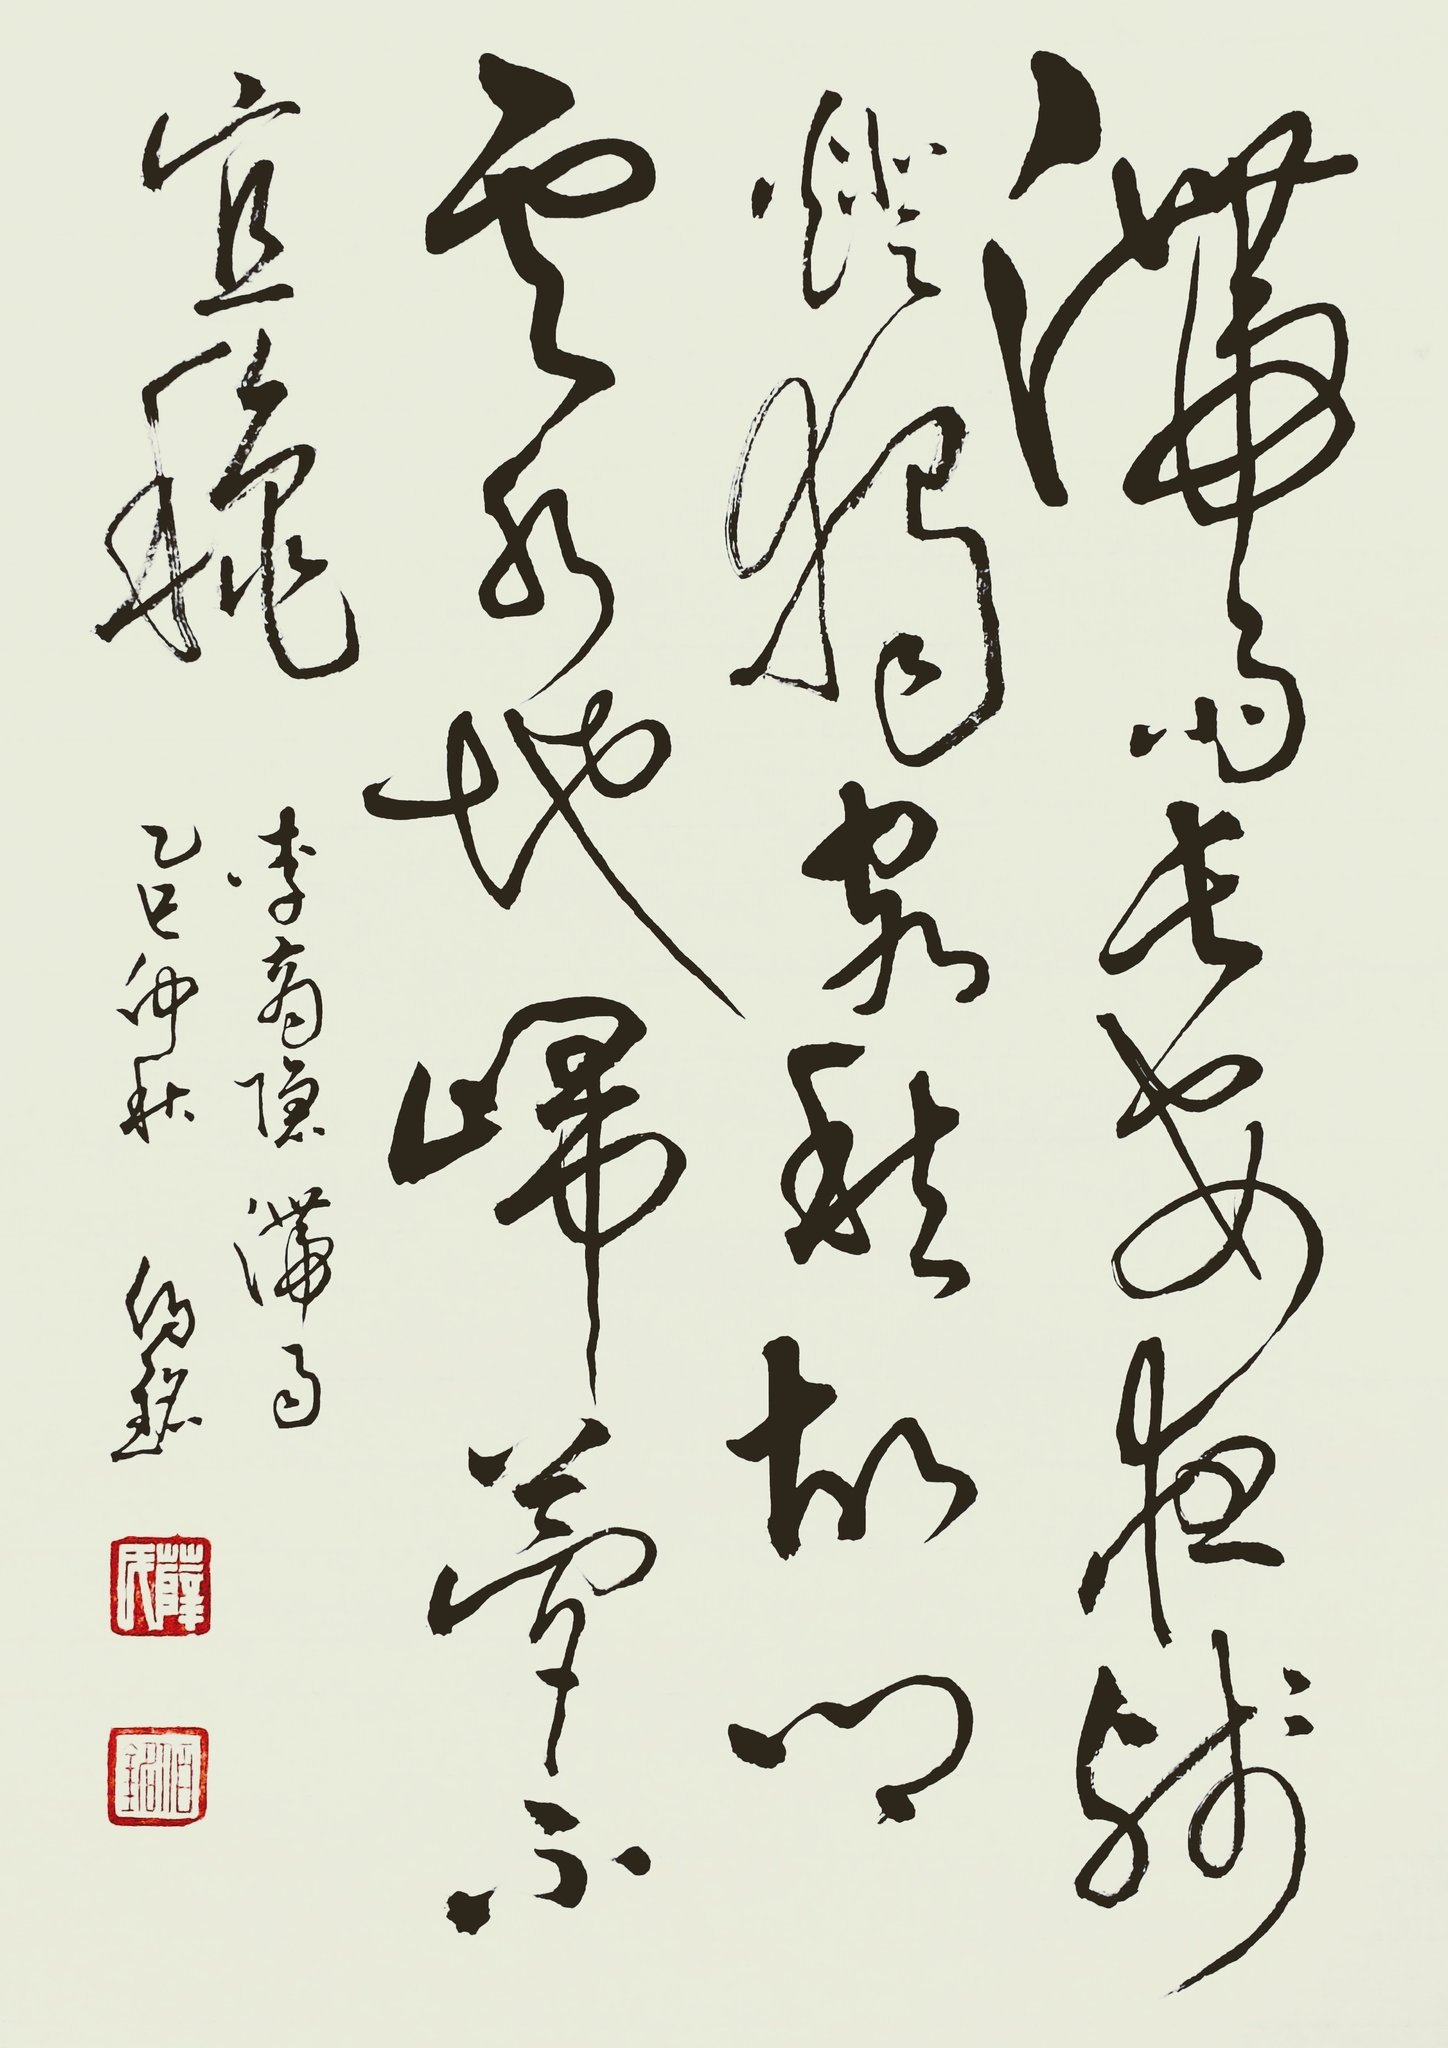 滯雨長安夜殘
燈獨客愁故鄉
雲水地歸夢不
宜龝
李商隱 滯雨
乙巳仲秋 伯銘
薛氏
伯銘